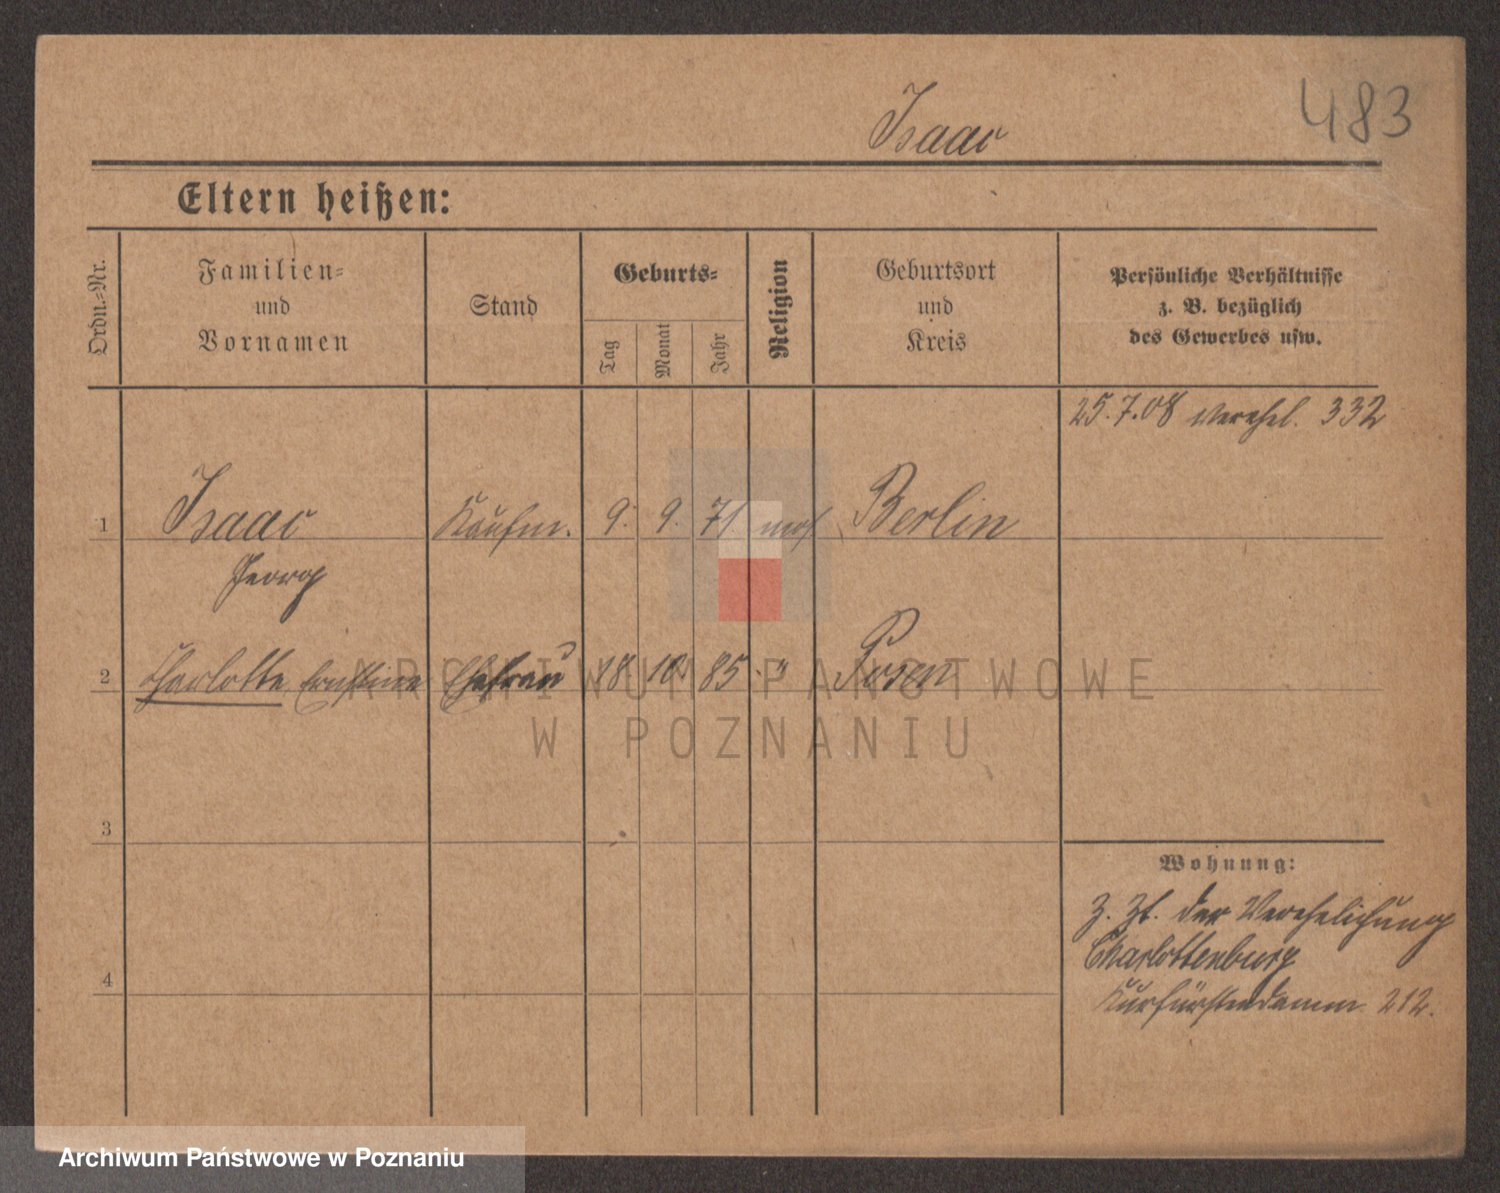 483
Isaac
Eltern heißen:
Ordn.-Nr.
Familien-
und
Vornamen
Stand
Geburts-
Tag
Monat
Jahr
Religion
Geburtsort
und
Kreis
Persönliche Verhältnisse
z. B. bezüglich
des Gewerbes usw.
25.7.08 verehel. 332
1 Isaac Kaufm. 9. 9. 71 mos. Berlin
Georg
2 Charlotte Ernstine Ehefrau 18 10. 85 " Posen
3
4
Wohnung:
Z. Zt. der Verehelichung
Charlottenburg
Kurfürstendamm 212.
ARCHIWUM PAŃSTWOWE
W POZNANIU
Archiwum Państwowe w Poznaniu